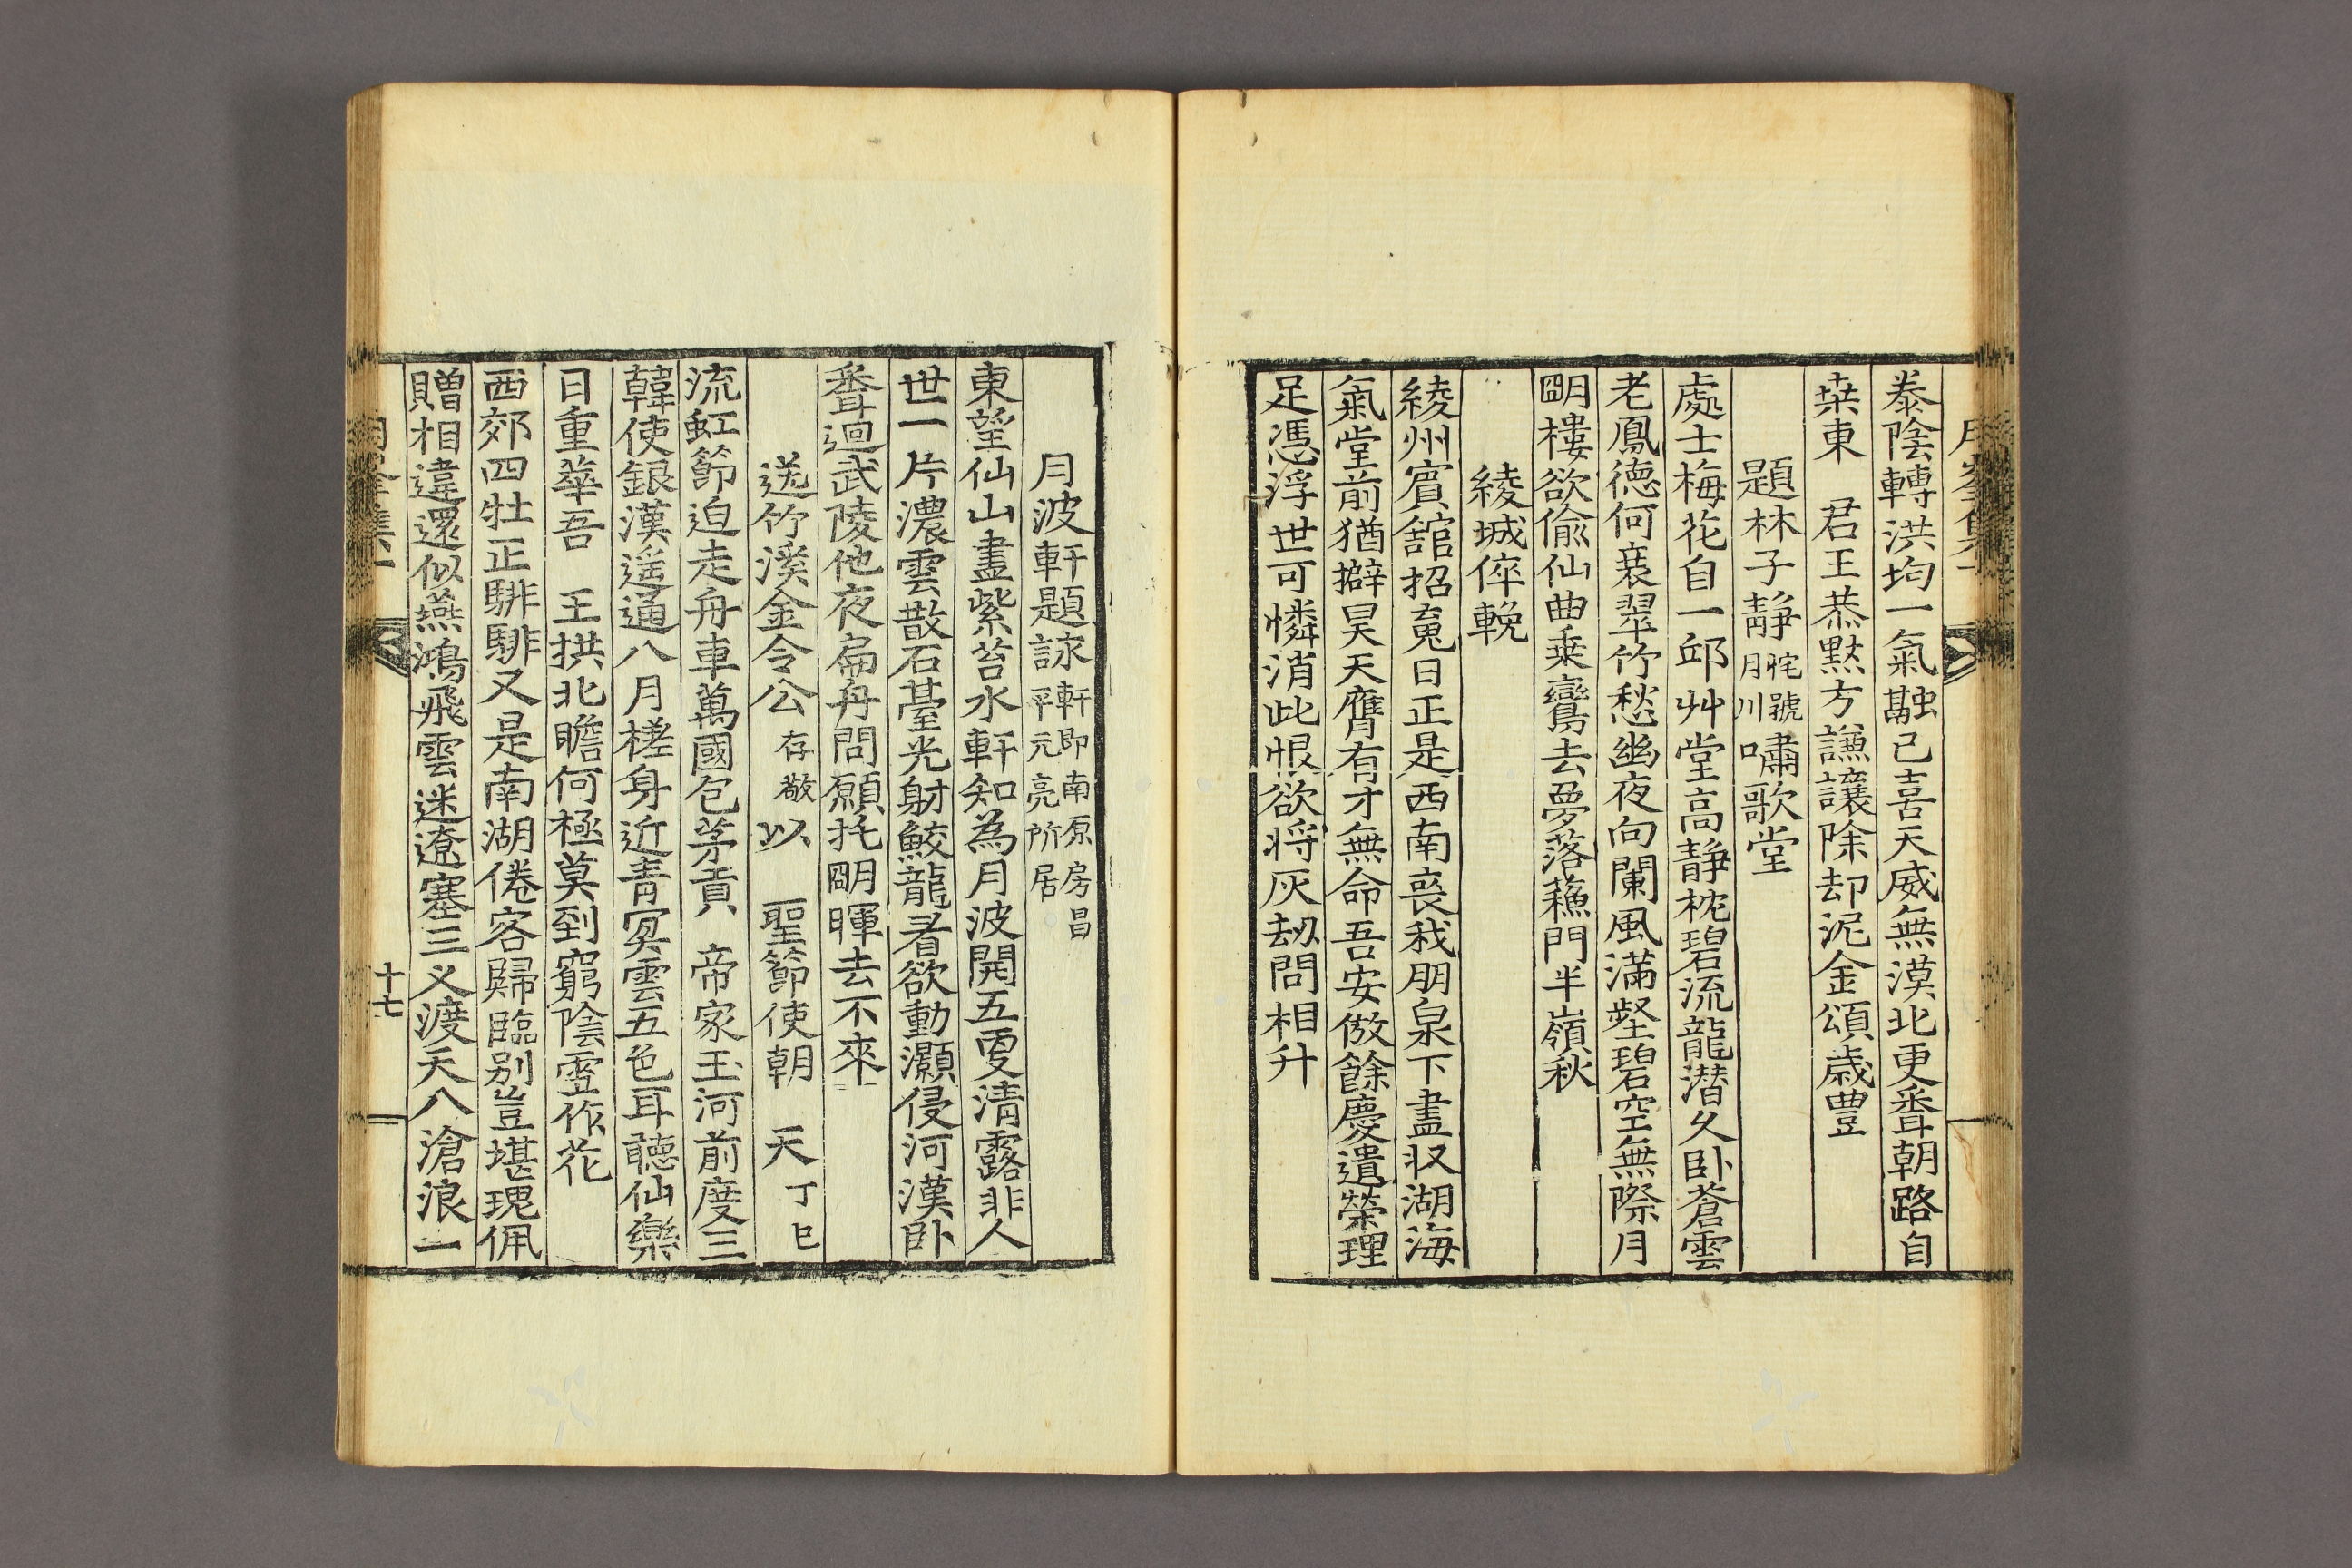 泰陰轉洪均一氣融已喜天威無漠北更番朝路自
桒東　君王恭黙方謙讓除却泥金頌歳豊
題林子靜㤞號月川嘯歌堂
處士梅花自一邱艸堂高靜枕碧流龍潜久卧蒼雲
老鳳德何衰翠竹愁幽夜向闌風滿壑碧空無際月
朙樓欲偸仙曲乗鸞去夣落蘓門半嶺秋
綾城倅輓
綾州賓舘招䰟日正是西南喪我朋泉下盡収湖海
氣堂前猶擗昊天膺有才無命吾安倣餘慶遺榮理
足憑浮世可憐消此恨欲将灰劫問相升
月波軒題詠軒即南原房昌平元亮所居
東望仙山盡紫苔水軒知為月波開五更清露非人
世一片濃雲散石䑓光射鮫龍看欲動灝侵河漢卧
番迴武陵他夜扁舟問願托朙暉去不來
送竹溪金令公存敬以　聖節使朝　天丁巳
流虹節迫走舟車萬國包茅貢　帝家玉河前度三
韓使銀漢遥通八月槎身近青冥雲五色耳聽仙樂
日重華吾　王拱北瞻何極莫到窮陰雪作花
西郊四牡正騑騑又是南湖倦客歸臨别豈堪瑰佩
贈相違還似燕鴻飛雲迷遼塞三义渡天八滄浪一
十七